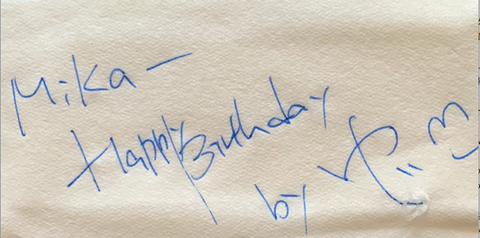 Mika—
Happy Birthday
by